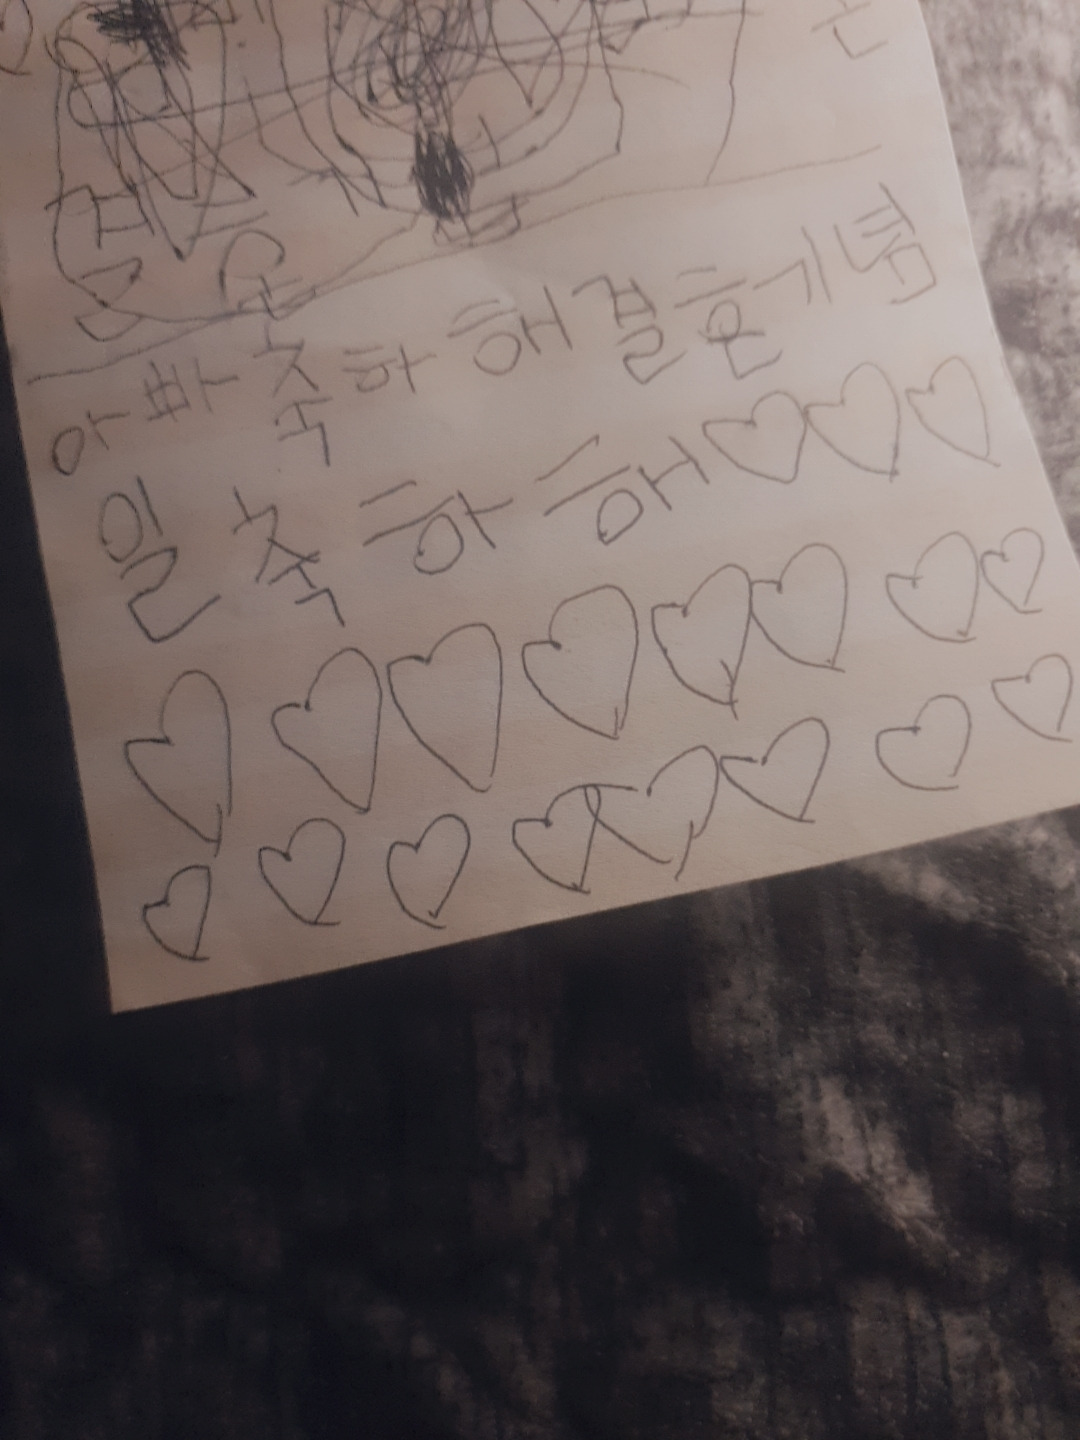 아빠 축하해 결혼기념
일 축하해♡♡♡
♡♡♡♡♡♡♡♡
♡♡♡♡♡♡♡♡